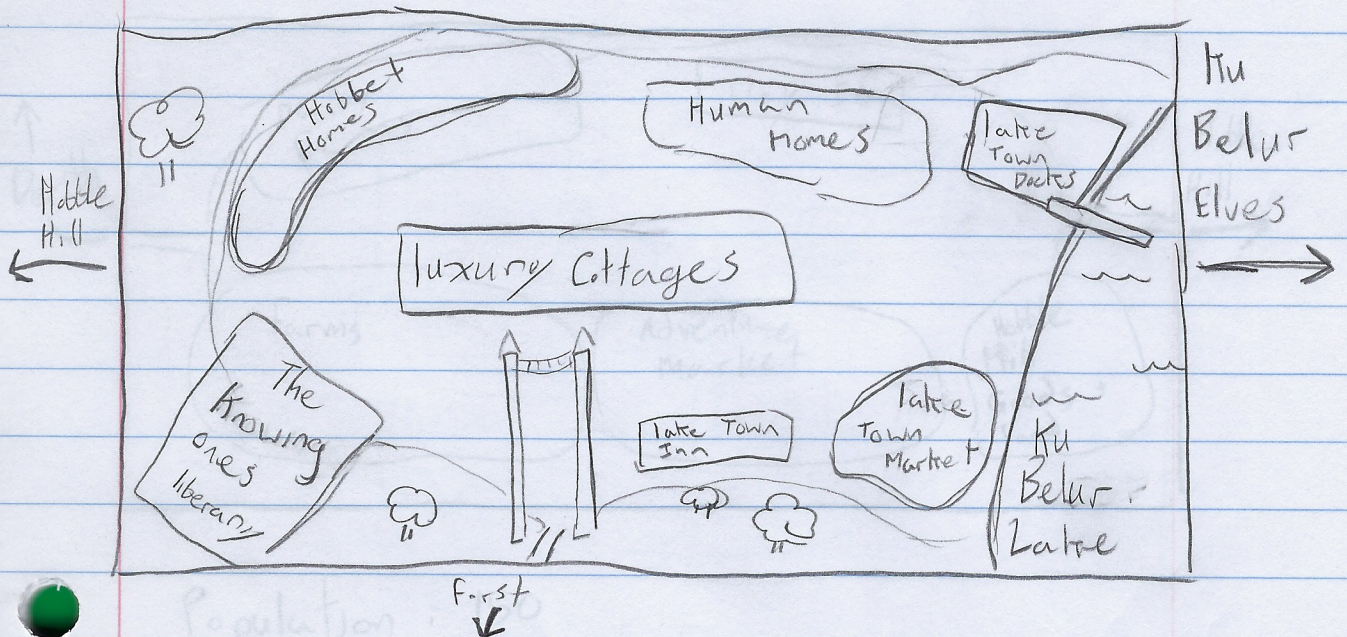 Hobbet
Homes
Human
Homes
lake
Town
Docks
Ku
Belur
Elves
Hobble
Hill
luxury Cottages
The
Knowing
ones
liberary
lake Town
Inn
lake
Town
Market
Ku
Belur
Lake
Forst
Farms
Adventure
Market
Population :